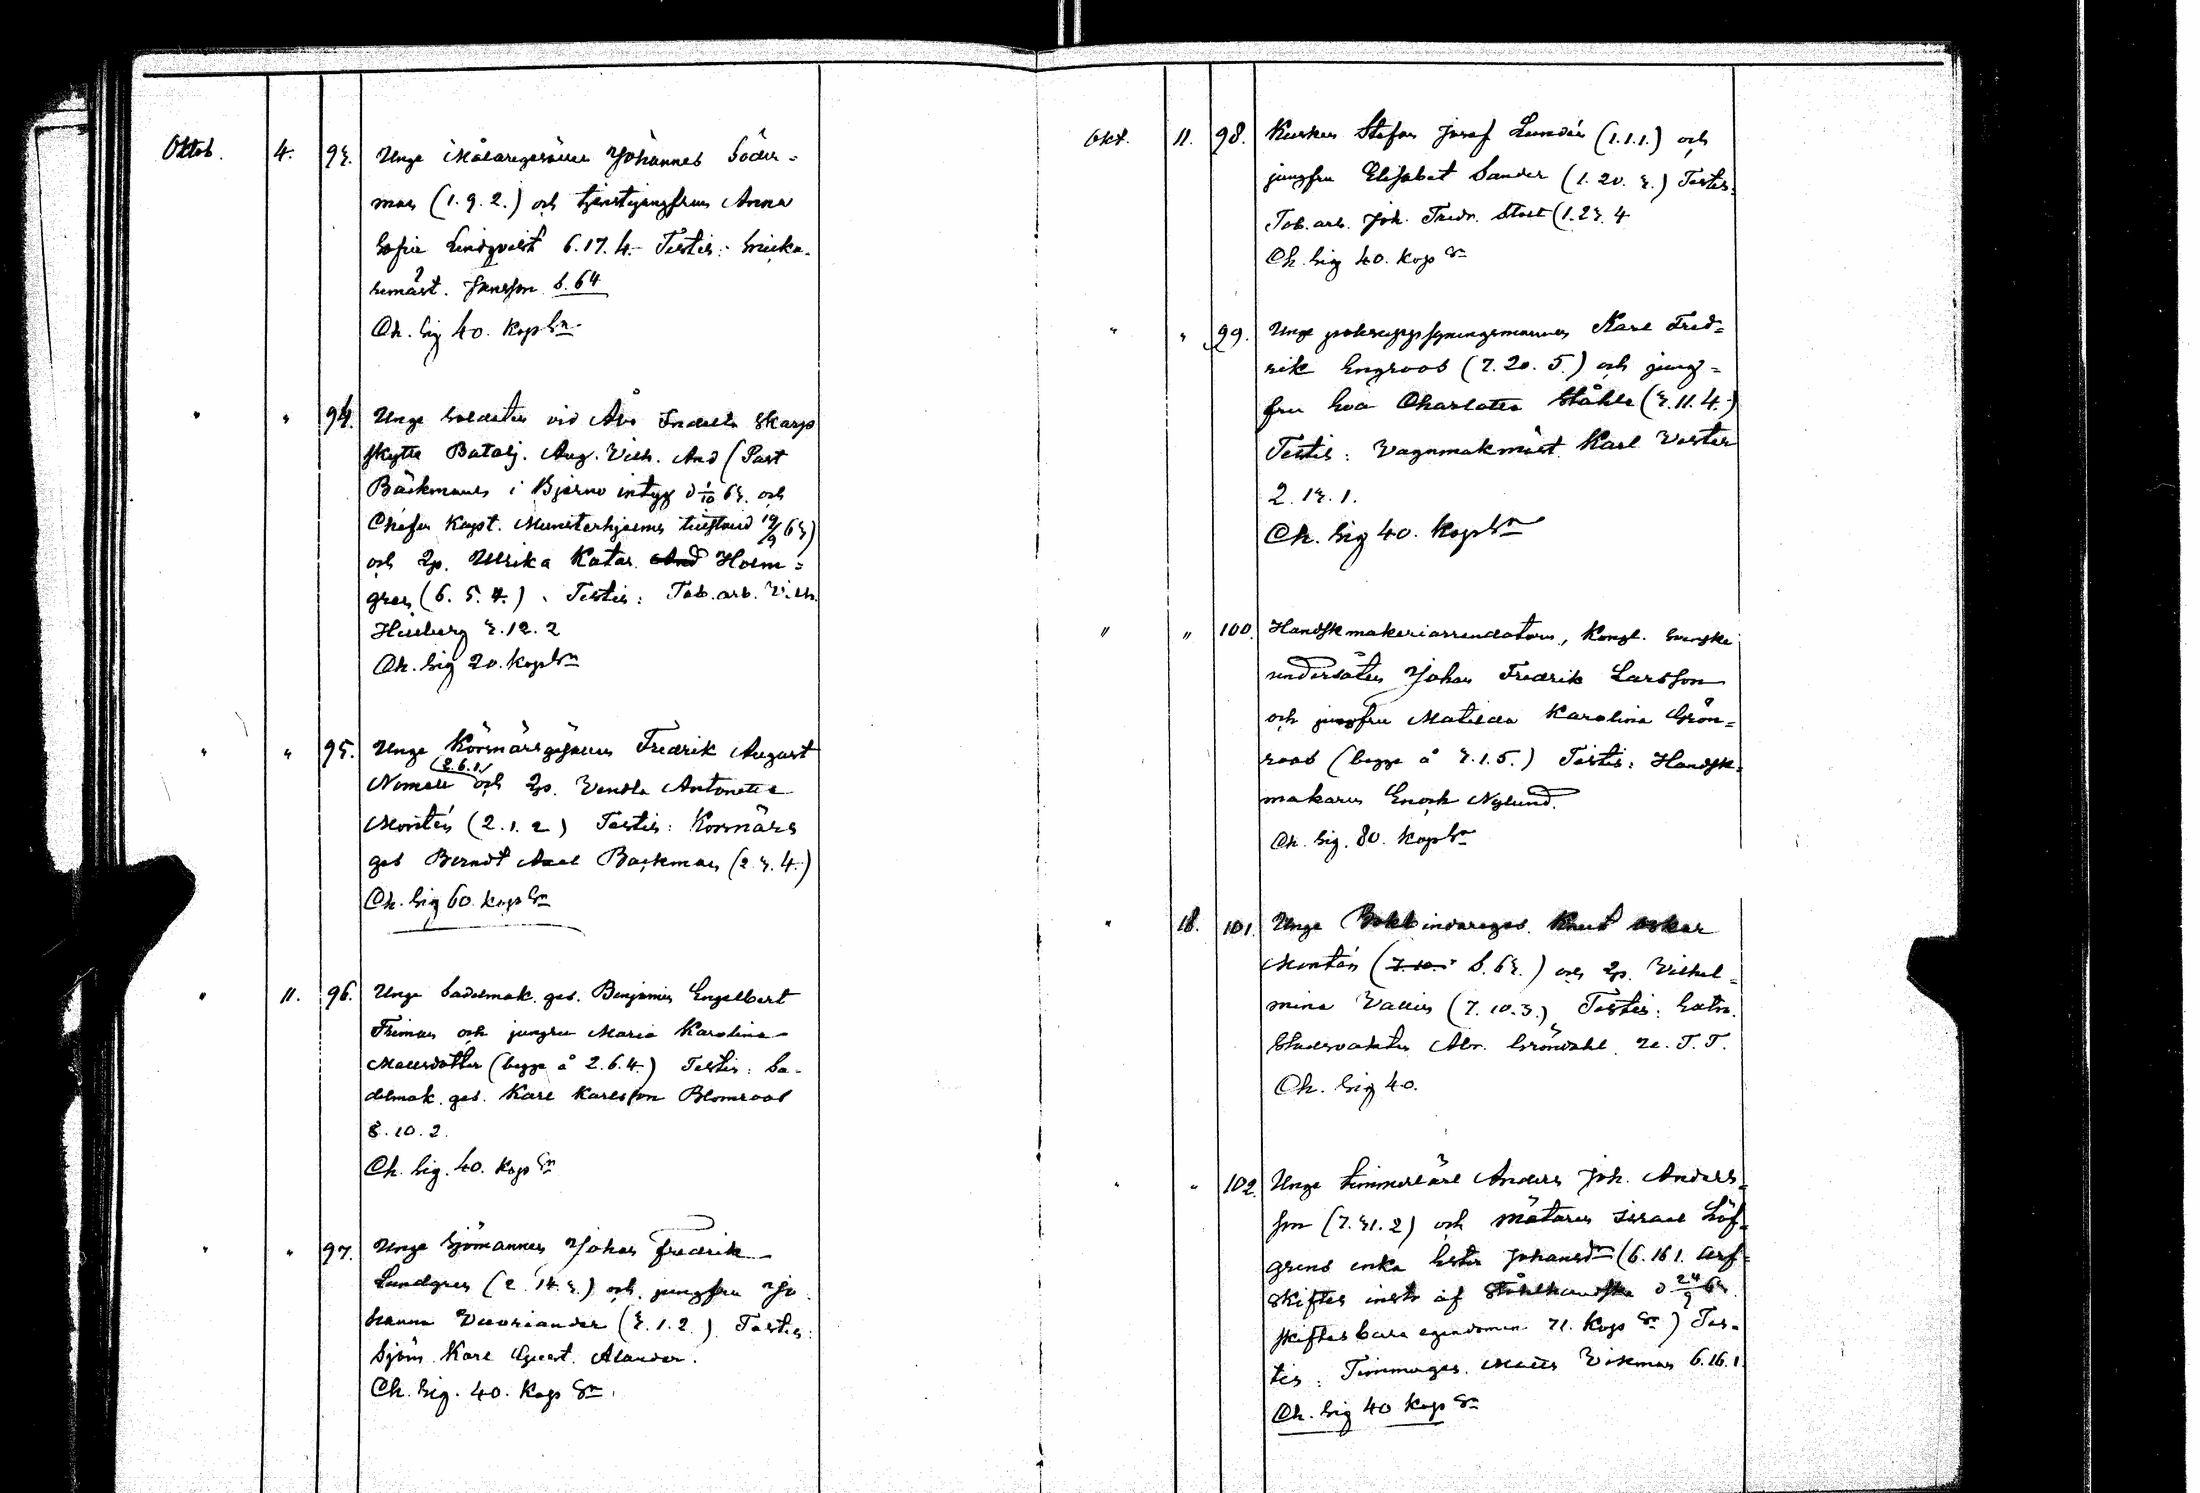 Oktob. 4. 93. Unge Målaregesällen Johannes Söder=
man (1.9.2.) och tjenstejungfrun Anna
Sofia Lindqvist 6.17.4. Testis: Snicka-
remäst. Jansson S. 64
Ch. Sig 40. Kop Sr
" " 94. Unge Soldaten vid Åbo Indelta Skarp
skytte Batalj. Aug. Vilh. And (Past
Bäckmans i Bjerno intyg d 1/10 63. och
Chefen Kapt. Munsterhjelms tillstånd 19/9 63)
och Jp. Ulrika Katar. And Holm=
gren (6.5.4.). Testis: Tob. arb. Vilh.
Hillberg 3.12.2
Ch. Sig 20. Kop Sr
" " 95. Unge Körsnärsgesällen Fredrik August
(2.6.1.)
Nomell och Jp. Vendla Antonetta
Montén (2.1.2) Testis: Korsnärs
ges Berndt Axel Backman (2.3.4.)
Ch. Sig 60. Kop Sr
" 11. 96. Unge Sadelmak. ges. Benjamin Engelbert
Friman och jungfru Maria Karolina
Mattsdotter (begge å 2.6.4.) Testis: Sa-
delmak. ges. Karl Karlsson Blomroos
8.10.2.
Ch. Sig. 40. Kop Sr
" " 97. Unge Sjömannen Johan Fredrik
Lundgren (2.14.3.) och jungfru Jo
hanna Vuoriander (3.1.2.) Testis:
Sjöm. Karl Alander.
Ch. Sig. 40. Kop Sr.
Okt. 11. 98. Kusken Stefan Josef Lundén (1.1.1.) och
jungfru Elisabet Sander (1.20.3.) Testis:
Tob. arb. Joh. Fredr. Stolt (1.23.4
Ch. Sig 40. Kop Sr
" " 99. Unge polisuppsyningsmannen Karl Fred=
rik Engroos (7.20.5.) och jung=
fru Eva Charlotta Ståhle (3.11.4.)
Testis: Vagnmakmäst. Karl Vester
2.13.1.
Ch. Sig 40. Kop Sr
" " 100. Handskmakeriarrendatorn, Kongl. Svenske
undersåten Johan Fredrik Larsson
och jungfru Matilda Karolina Grön=
roos (begge å 3.1.5.) Testis: Handsk=
makaren Enoch Nylund.
Ch. Sig. 80. Kop Sr
" 18. 101. Unge Bokbindareges. Knut Oskar
Montén (7.10. S. 63.) och Jp. Vilhel=
mina Vallin (7.10.3.) Testis: Extr.
Stadsvakten Abr. Gröndahl. 7e. T. T.
Ch. Sig 40.
" " 102. Unge timmerkarl Anders Joh. Anders=
son (7.31.2) och mätaren Israel Löf=
grens enka Ester Johansdr (6.16.1. Arf=
skiftes instr af Stålhandske d 24/9 63.
skiftesbara egendomen 71. Kop Sr) Tes=
tis: Timmerges. Matts Vikman 6.16.1
Ch. Sig 40 Kop Sr